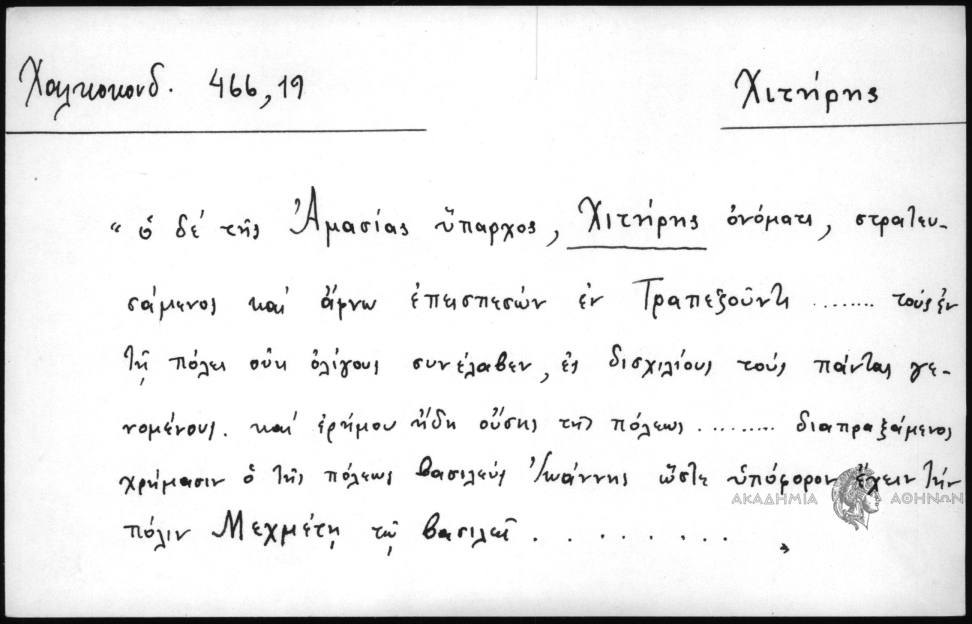 Χαλκοκονδ. 466,19
Χιτήρης
“ὁ δέ τῆς Ἀμασίας ὕπαρχος, Χιτήρης ὀνόματι, στρατευ-
σάμενος καί ἄφνω ἐπεισπεσών ἐν Τραπεζοῦντι ........ τούς ἐν
τῇ πόλει οὐκ ὀλίγους συνέλαβεν, ἐς δισχιλίους τούς πάντας γε-
νομένους. καί ἐρήμου ἤδη οὔσης τῆς πόλεως ......... διαπραξάμενος
χρήμασιν ὁ τῆς πόλεως βασιλεύς Ἰωάννης ὥστε ὑπόφορον ἔχειν τήν
ΑΚΑΔΗΜΙΑ ΑΘΗΝΩΝ
πόλιν Μεχμέτῃ τῷ βασιλεῖ . . . . . . . . . ”